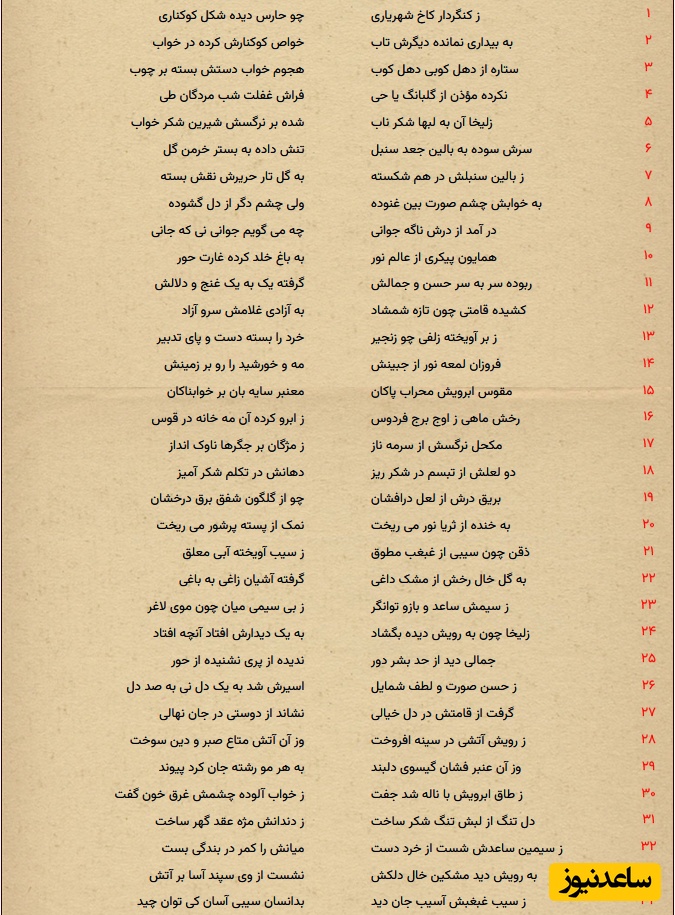 ۱ ز کنگردار کاخ شهریاری چو حارس دیده شکل کوکناری
۲ به بیداری نمانده دیگرش تاب خواص کوکنارش کرده در خواب
۳ ستاره از دهل کوبی دهل کوب هجوم خواب دستش بسته بر چوب
۴ نکرده مؤذن از گلبانگ یا حی فراش غفلت شب مردگان طی
۵ زلیخا آن به لبها شکر ناب شده بر نرگسش شیرین شکر خواب
۶ سرش سوده به بالین جعد سنبل تنش داده به بستر خرمن گل
۷ ز بالین سنبلش در هم شکسته به گل تار حریرش نقش بسته
۸ به خوابش چشم صورت بین غنوده ولی چشم دگر از دل گشوده
۹ در آمد از درش ناگه جوانی چه می گویم جوانی نی که جانی
۱۰ همایون پیکری از عالم نور به باغ خلد کرده غارت حور
۱۱ ربوده سر به سر حسن و جمالش گرفته یک به یک غنج و دلالش
۱۲ کشیده قامتی چون تازه شمشاد به آزادی غلامش سرو آزاد
۱۳ ز بر آویخته زلفی چو زنجیر خرد را بسته دست و پای تدبیر
۱۴ فروزان لمعه نور از جبینش مه و خورشید را رو بر زمینش
۱۵ مقوس ابرویش محراب پاکان معنبر سایه بان بر خوابناکان
۱۶ رخش ماهی ز اوج برج فردوس ز ابرو کرده آن مه خانه در قوس
۱۷ مکحل نرگسش از سرمه ناز ز مژگان بر جگرها ناوک انداز
۱۸ دو لعلش از تبسم در شکر ریز دهانش در تکلم شکر آمیز
۱۹ بریق درش از لعل درافشان چو از گلگون شفق برق درخشان
۲۰ به خنده از ثریا نور می ریخت نمک از پسته پرشور می ریخت
۲۱ ذقن چون سیبی از غبغب مطوق ز سیب آویخته آبی معلق
۲۲ به گل خال رخش از مشک داغی گرفته آشیان زاغی به باغی
۲۳ ز سیمش ساعد و بازو توانگر ز بی سیمی میان چون موی لاغر
۲۴ زلیخا چون به رویش دیده بگشاد به یک دیدارش افتاد آنچه افتاد
۲۵ جمالی دید از حد بشر دور ندیده از پری نشنیده از حور
۲۶ ز حسن صورت و لطف شمایل اسیرش شد به یک دل نی به صد دل
۲۷ گرفت از قامتش در دل خیالی نشاند از دوستی در جان نهالی
۲۸ ز رویش آتشی در سینه افروخت وز آن آتش متاع صبر و دین سوخت
۲۹ وز آن عنبر فشان گیسوی دلبند به هر مو رشته جان کرد پیوند
۳۰ ز طاق ابرویش با ناله شد جفت ز خواب آلوده چشمش غرق خون گفت
۳۱ دل تنگ از لبش تنگ شکر ساخت ز دندانش مژه عقد گهر ساخت
۳۲ ز سیمین ساعدش شست از خرد دست میانش را کمر در بندگی بست
به رویش دید مشکین خال دلکش نشست از وی سپند آسا بر آتش
ز سیب غبغبش آسیب جان دید بدانسان سیبی آسان کی توان چید
ساعدنیوز